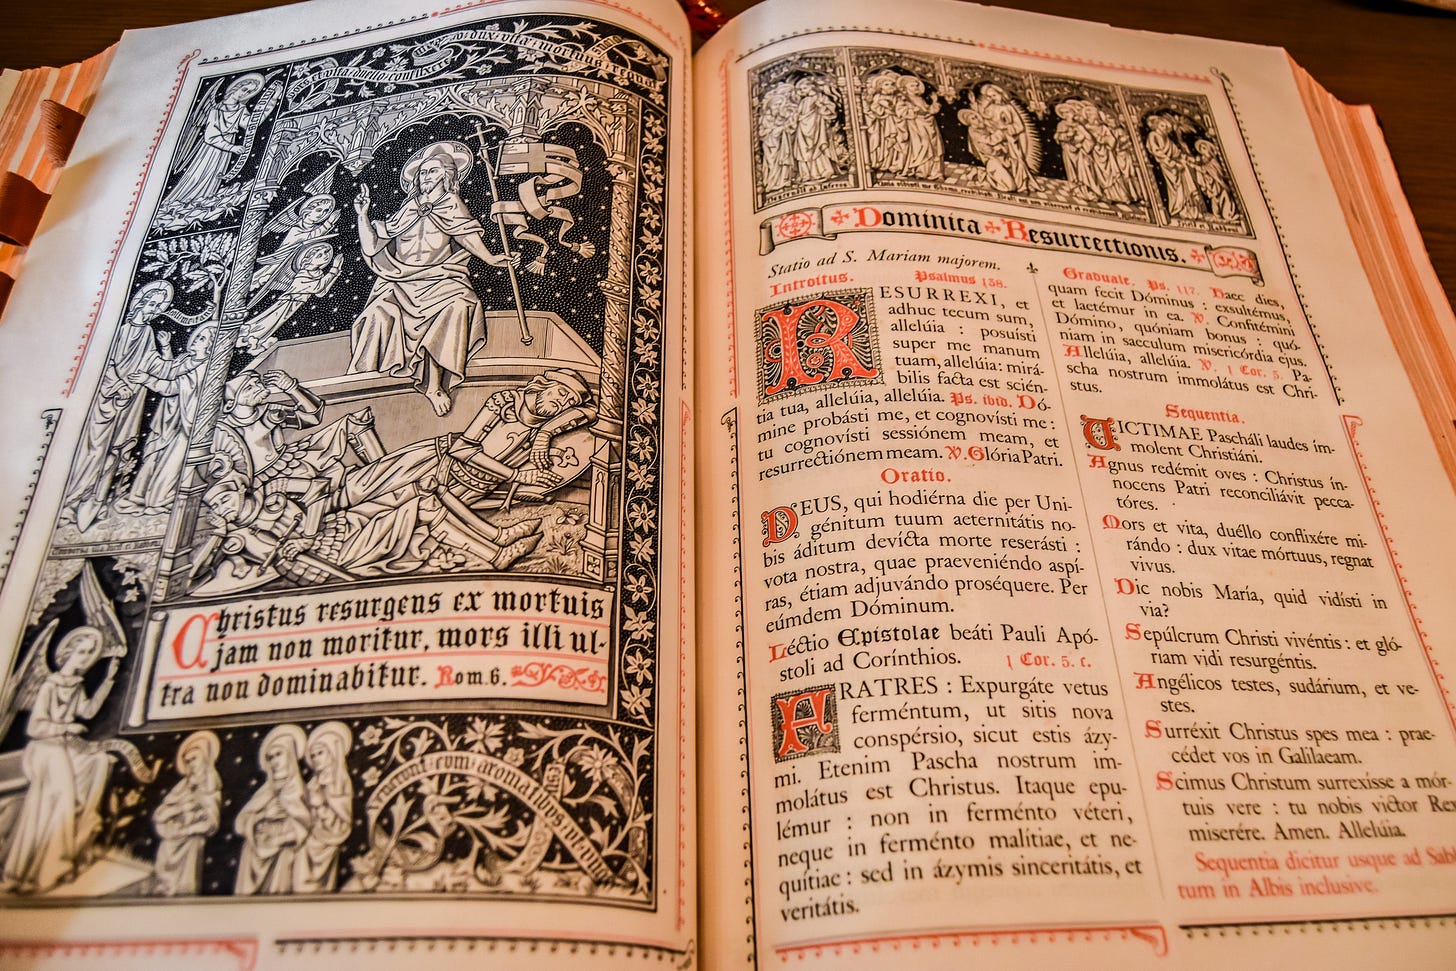 et vita duello conflixere
dux vite mortuus regnat
Christus resurgens ex mortuis
jam non moritur, mors illi ul-
tra non dominabitur. Rom. 6.
cum aromatibus
Dominica Resurrectionis.
Statio ad S. Mariam majorem.
Introitus. Psalmus 138.
RESURREXI, et
adhuc tecum sum,
allelúia : posuísti
super me manum
tuam, allelúia: mirá-
bilis facta est scién-
tia tua, allelúia, allelúia. Ps. ibid. Dó-
mine probásti me, et cognovísti me :
tu cognovísti sessiónem meam, et
resurrectiónem meam. ℣. Glória Patri.
Oratio.
DEUS, qui hodiérna die per Uni-
génitum tuum aeternitátis no-
bis áditum devícta morte reserásti :
vota nostra, quae praeveniéndo aspí-
ras, étiam adjuvándo proséquere. Per
eúmdem Dóminum.
Léctio Epistolae beáti Pauli Apó-
stoli ad Corínthios. 1 Cor. 5. c.
FRATRES : Expurgáte vetus
ferméntum, ut sitis nova
conspérsio, sicut estis ázy-
mi. Etenim Pascha nostrum im-
molátus est Christus. Itaque epu-
lémur : non in ferménto véteri,
neque in ferménto malítiae, et ne-
quítiae : sed in ázymis sinceritátis, et
veritátis.
Graduale. Ps. 117. Haec dies,
quam fecit Dóminus : exsultémus,
et laetémur in ea. ℣. Confitémini
Dómino, quóniam bonus : quó-
niam in saeculum misericórdia ejus.
Allelúia, allelúia. ℣. 1 Cor. 5. Pa-
scha nostrum immolátus est Chri-
stus.
Sequentia.
VICTIMAE Pascháli laudes ím-
molent Christiáni.
Agnus redémit oves : Christus ín-
nocens Patri reconciliávit pecca-
tóres.
Mors et vita, duéllo conflixére mi-
rándo : dux vitae mórtuus, regnat
vivus.
Dic nobis María, quid vidísti in
via?
Sepúlcrum Christi vivéntis : et gló-
riam vidi resurgéntis.
Angélicos testes, sudárium, et ve-
stes.
Surréxit Christus spes mea : prae-
cédet vos in Galilaeam.
Scimus Christum surrexísse a mór-
tuis vere : tu nobis victor Rex
miserére. Amen. Allelúia.
Sequentia dicitur usque ad Sabb
tum in Albis inclusive.